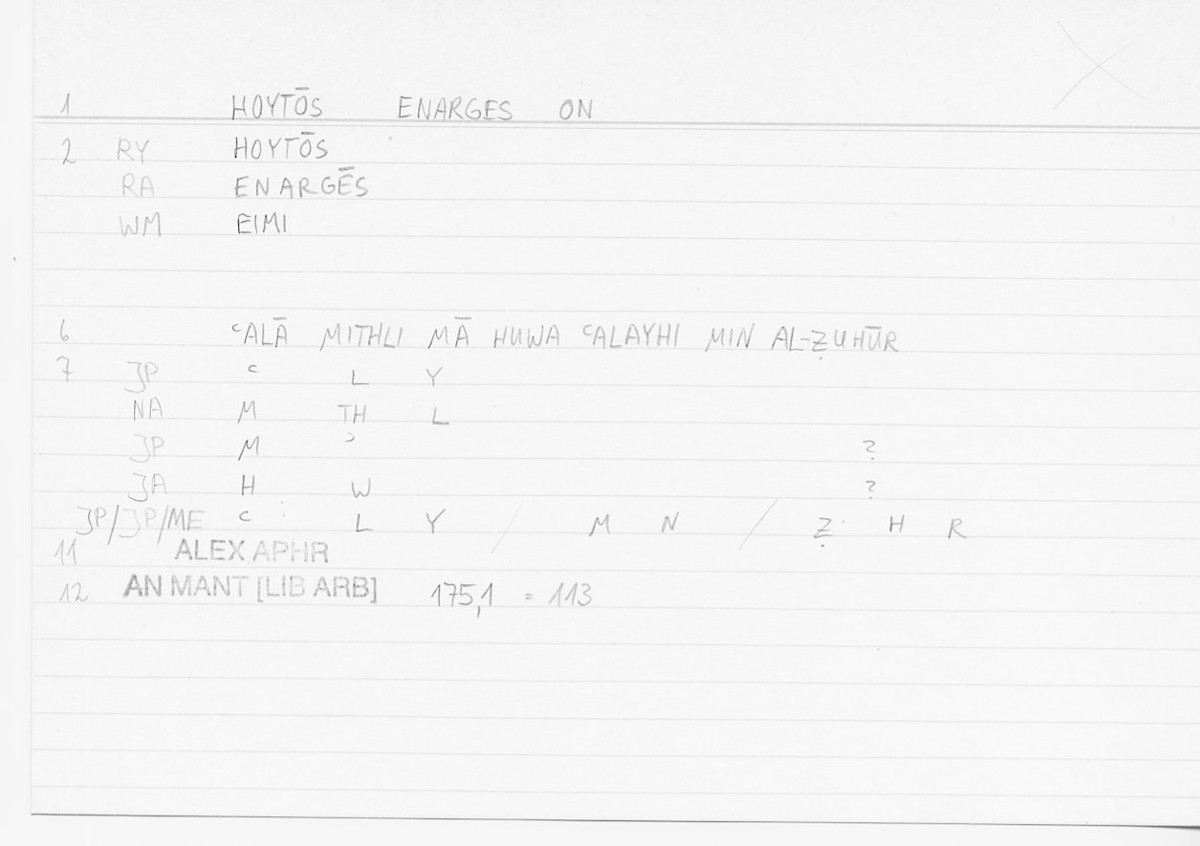 1 HOYTŌS ENARGES ON
2 RY HOYTŌS
RA ENARGĒS
WM EIMI
6 ʿALĀ MITHLI MĀ HUWA ʿALAYHI MIN AL-ẒUHŪR
7 JP ʿ L Y
NA M TH L
JP M ʾ ?
JA H W ?
JP/JP/ME ʿ L Y / M N / Ẓ H R
11 ALEX APHR
12 AN MANT [LIB ARB] 175,1 = 113